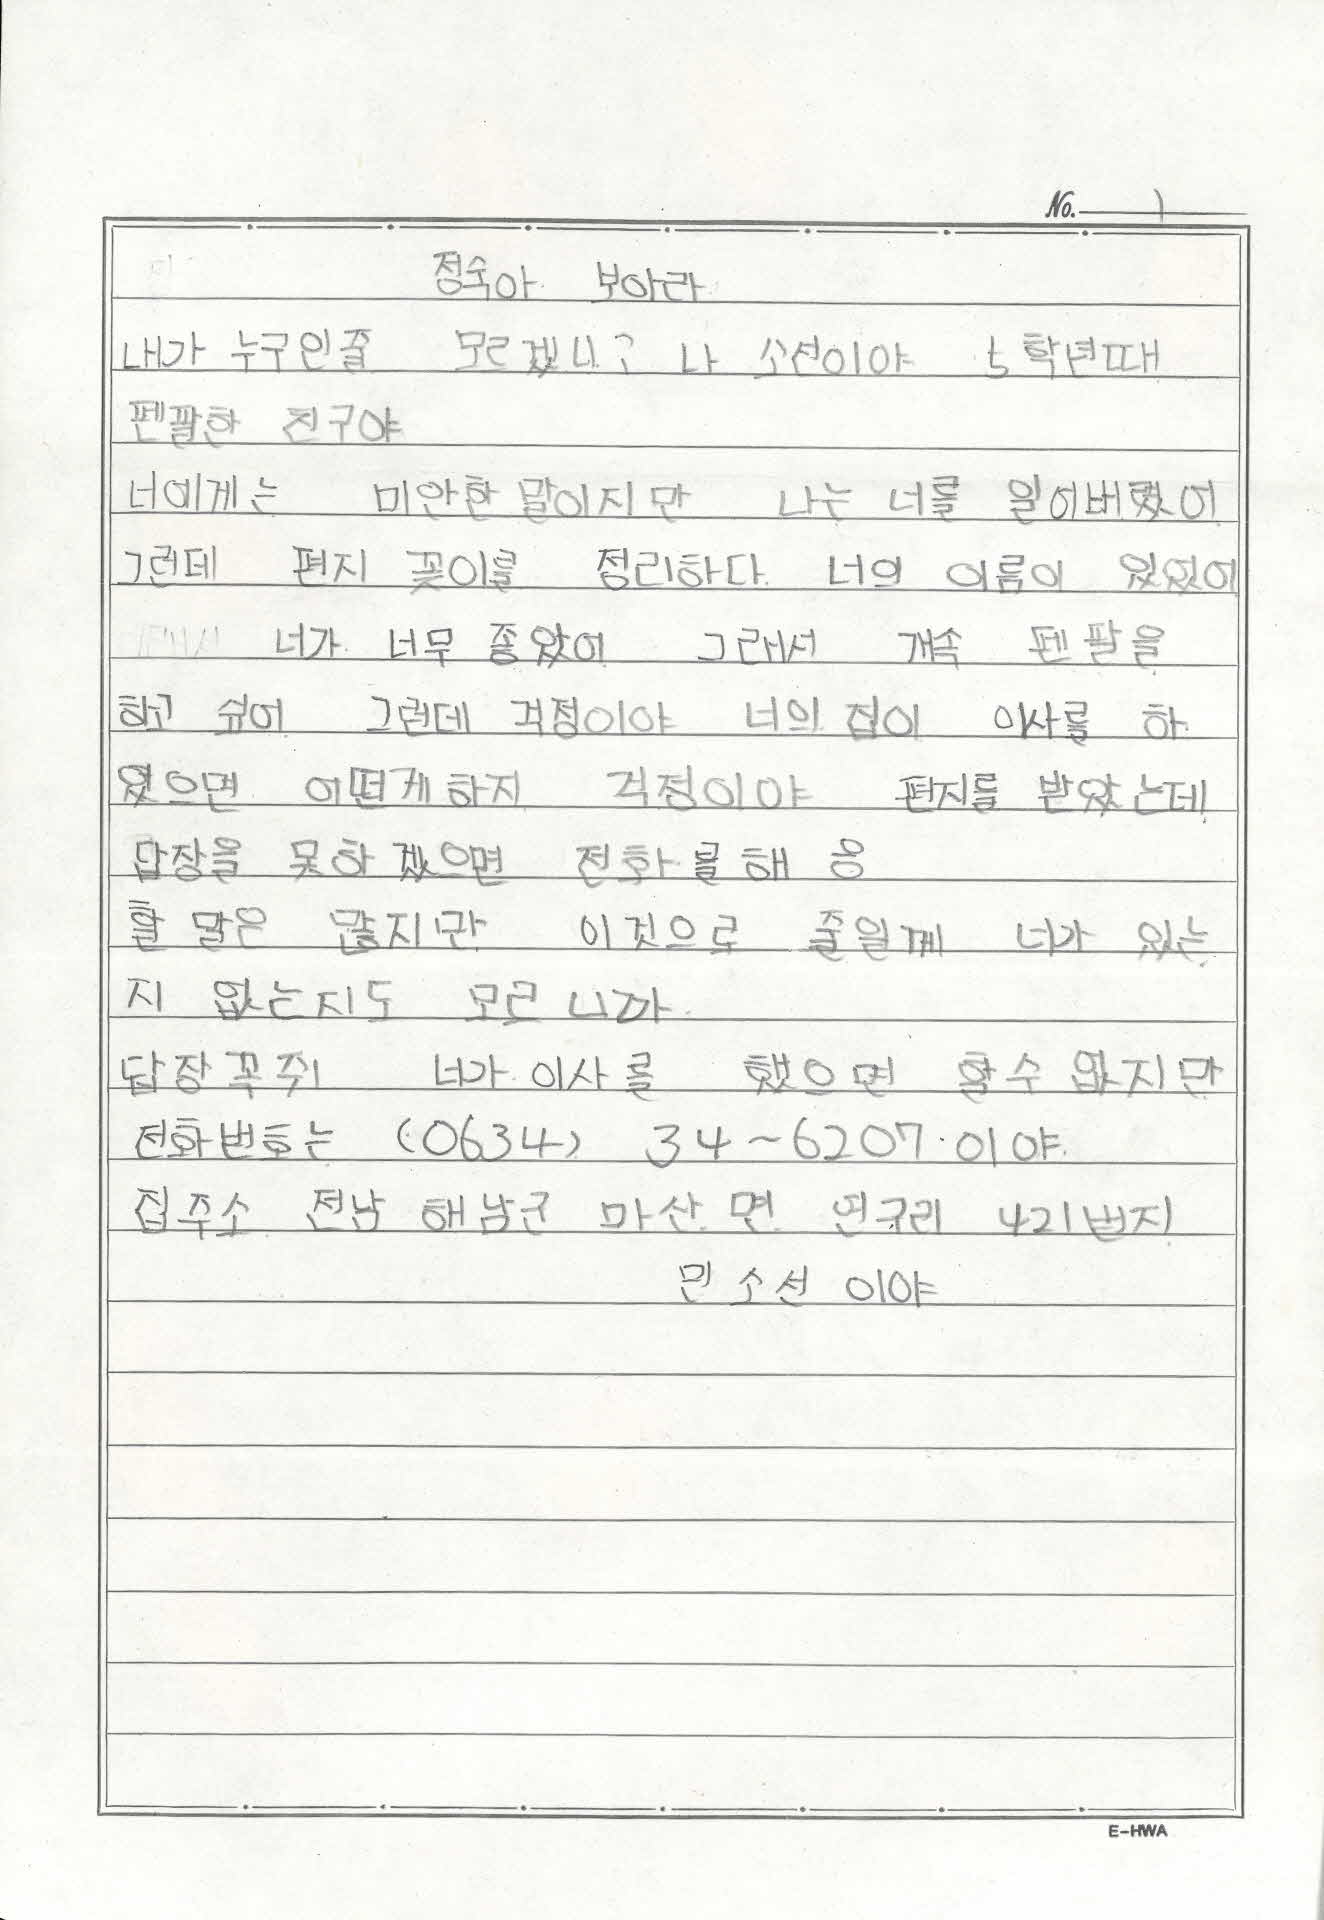 No. 1
정숙아 보아라
내가 누구인줄 모르겠니? 나 소선이야 5학년때
펜팔한 친구야
너에게는 미안한 말이지만 나는 너를 잃어버렸어
그런데 편지 꽂이를 정리하다 너의 이름이 있었어
너가 너무 좋았어 그래서 개속 펜팔을
하고 싶어 그런데 걱정이야 너의 집이 이사를 하
였으면 어떻게하지 걱정이야 편지를 받았는데
답장을 못하겠으면 전화를해 응
할 말은 많지만 이것으로 줄일께 너가 있는
지 없는지도 모르니까
답장꼭줘! 너가 이사를 했으면 할수 없지만
전화번호는 (0634) 34~6207 이야
집주소 전남 해남군 마산면 연구리 421번지
민소선 이야
E-HWA